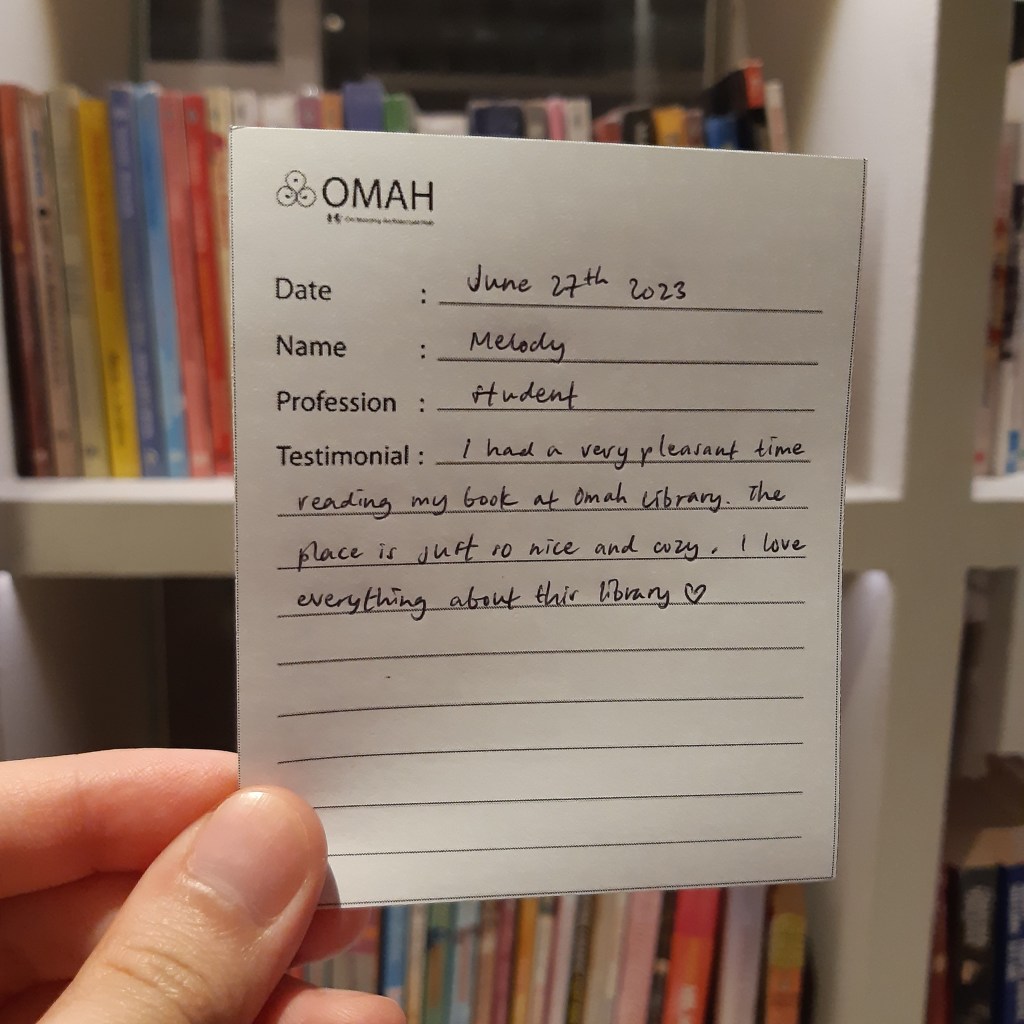 OMAH
Date : June 27th 2023
Name : Melody
Profession : student
Testimonial : I had a very pleasant time
reading my book at Omah Library. The
place is just so nice and cozy. I love
everything about this library ♡